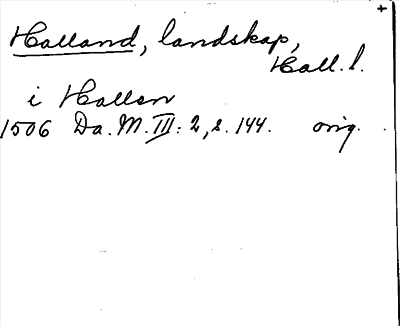 +
Halland, landskap,
Hall. l.
i Hallan
1506 Da. M. III: 2, s. 144. orig.